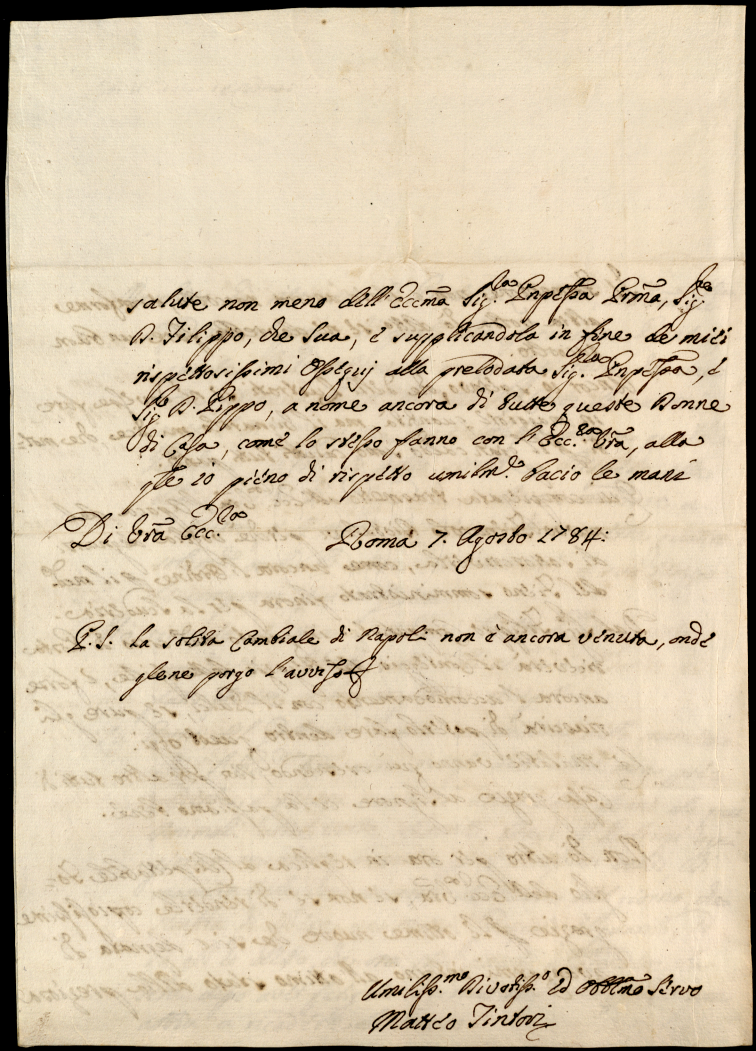 salute non meno dell'Eccm̃a Sig.ra Pnp̃essa Prm̃a, Sig.re
D. Filippo, che Sua, è supplicandola in fine de miei
rispettosissimi Ossequj alla prelodata Sig.ra Pnp̃essa, è
Sig.re D. Pippo, a nome ancora di tutte queste Donne
di Casa, come lo stesso fanno con l'Ecc.za Vr̃a, alla
qle io pieno di rispetto umilm.e bacio le mani
Di Vr̃a Ecc.za Roma 7. Agosto 1784:
P. S. La solita Cambiale di Napoli non è ancora venuta, onde
glene porgo l'avviso
Umiliss.mo Divotiss.o ed Obblm̃o Servo
Matteo Tintori